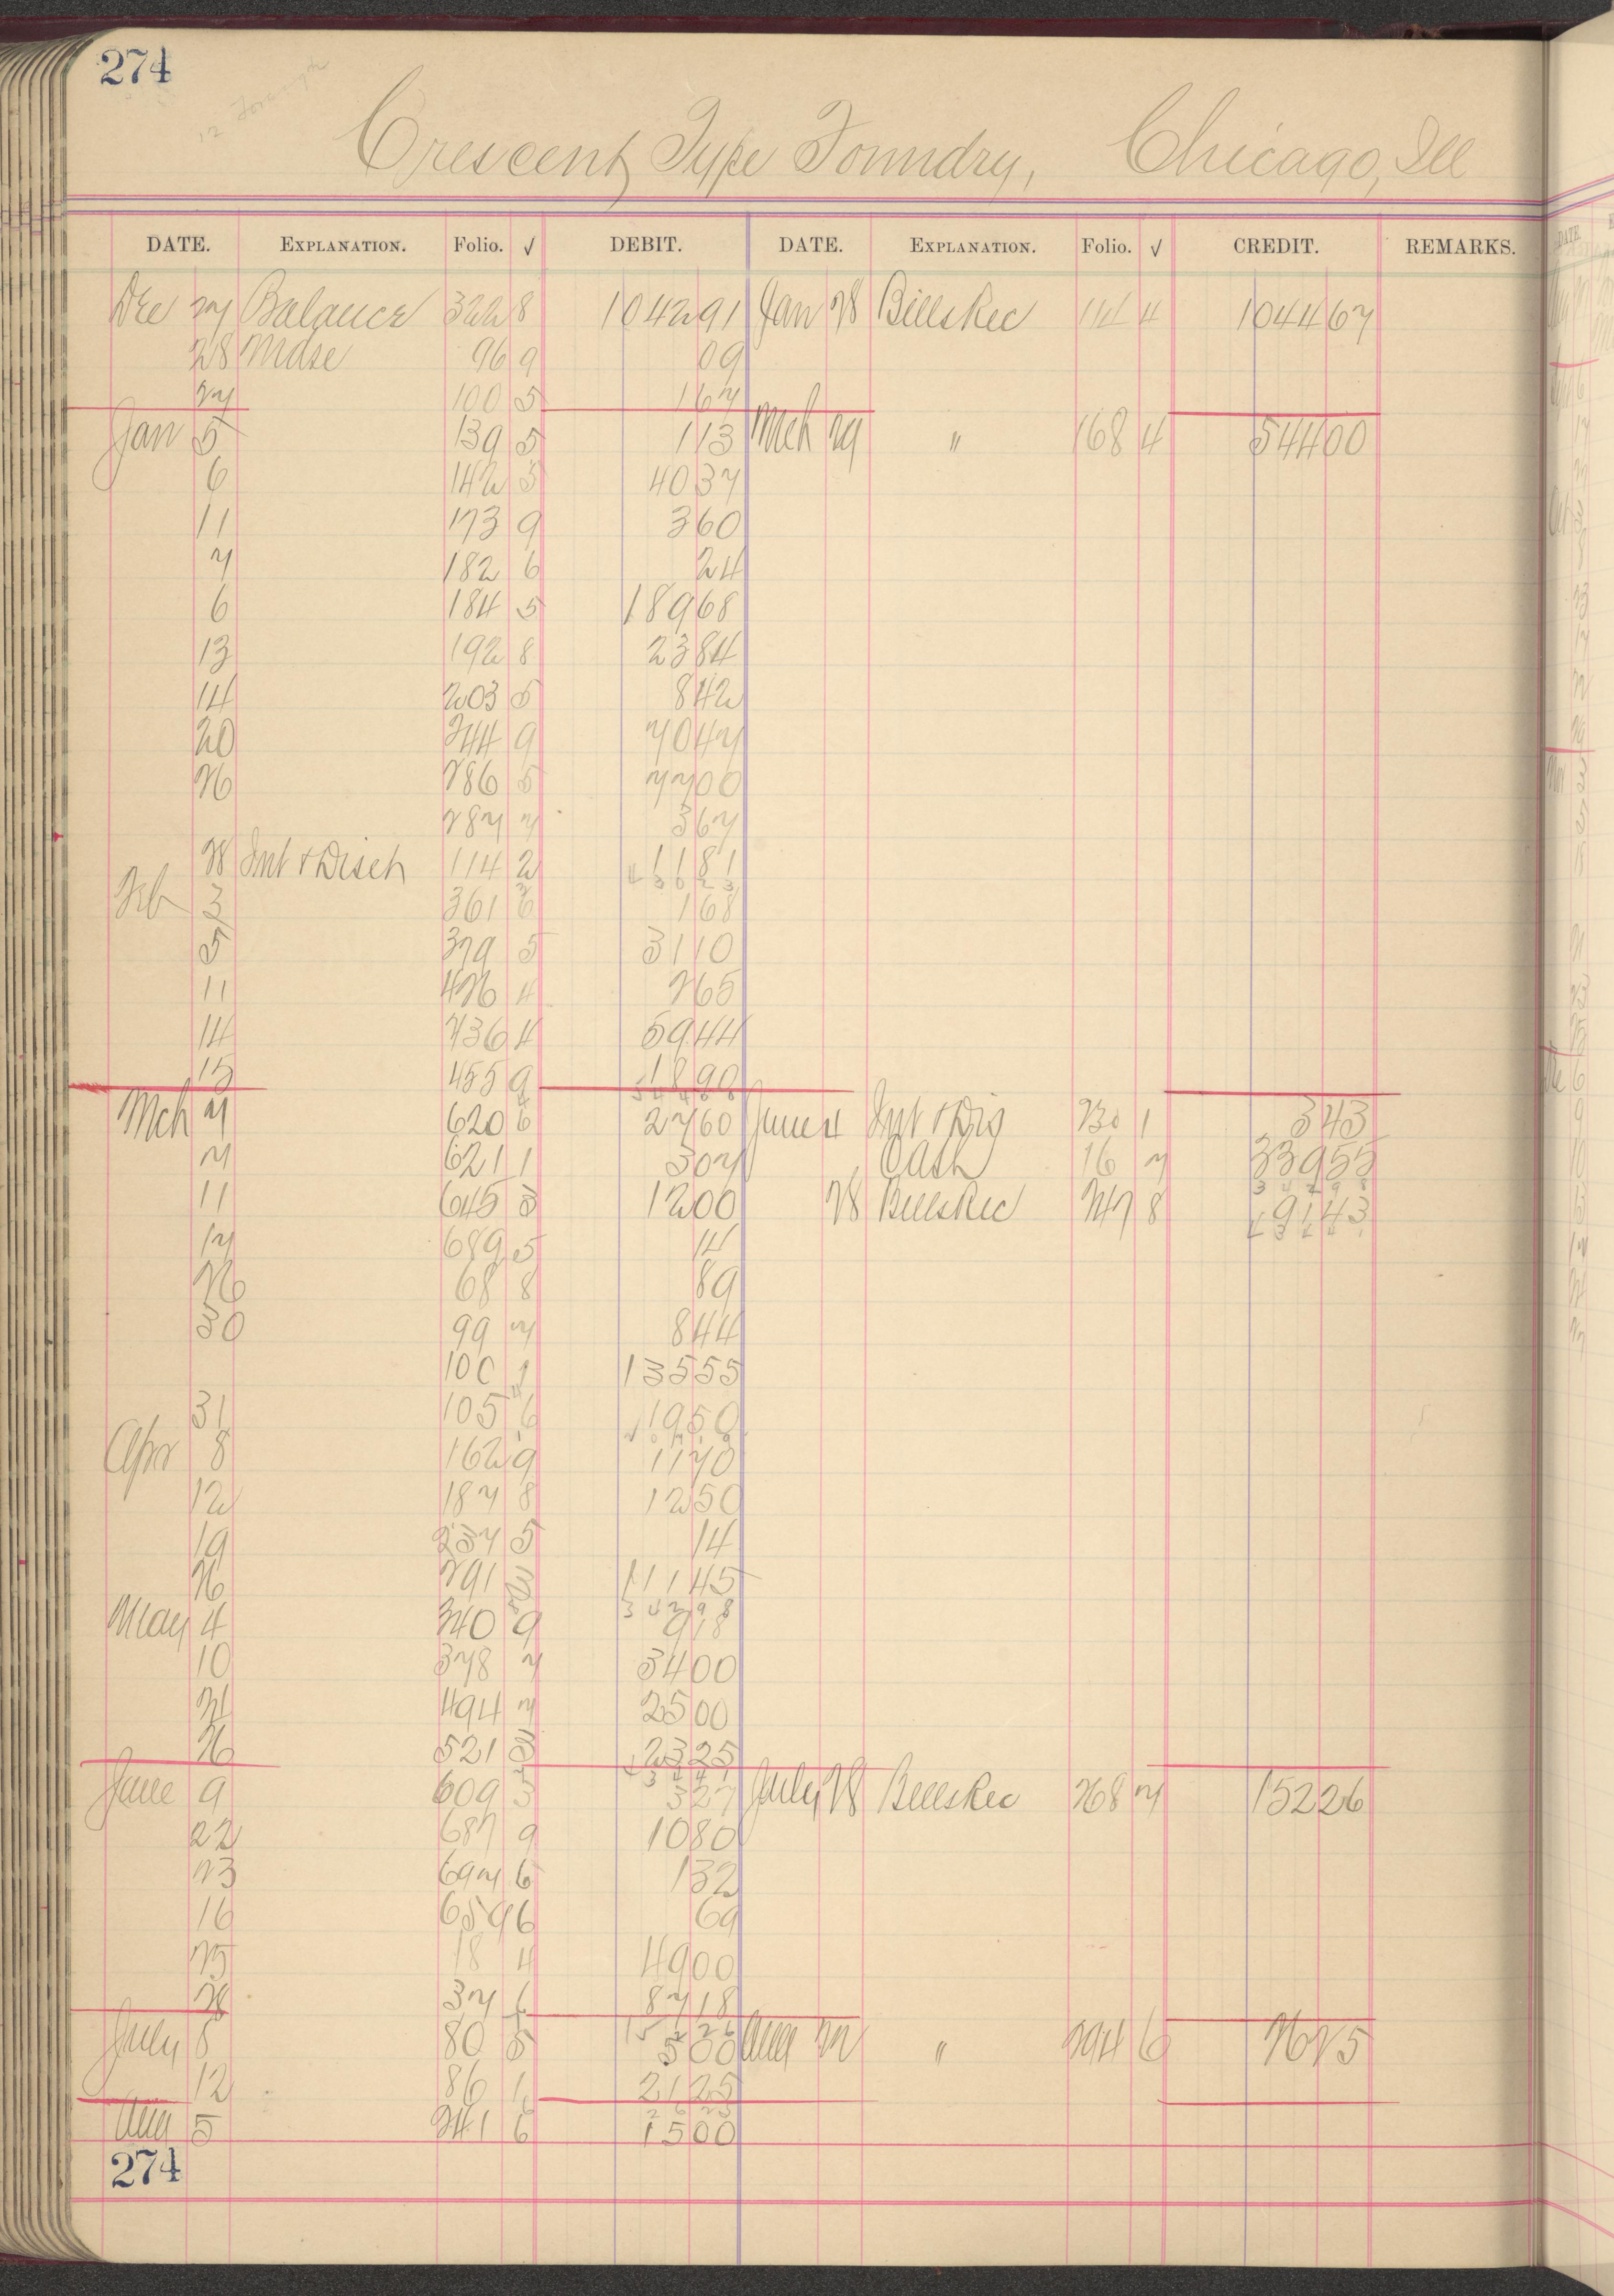 274
Crescent Type Foundry, Chicago, Ill
DATE. EXPLANATION. Folio. √ DEBIT. DATE. EXPLANATION. Folio. √ CREDIT. REMARKS.
Dec 27 Balance 322 8 1042 91 Jan 28 Bills Rec 114 4 1044 67
28 Mdse 96 9 09
27 100 5 1 67
Jan 5 139 5 1 13 Mch 29 " 168 4 544 00
6 142 5 40 37
11 173 9 3 60
7 182 6 24
6 184 5 189 68
13 192 8 23 84
14 203 5 8 42
20 244 9 70 47
26 286 5 77 00
287 7 3 67
28 Int & Disct 114 2 11 81
Feb 3 361 6 1 68
5 379 5 31 10
11 426 4 2 65
14 436 4 59 44
15 455 9 18 90
Mch 7 620 6 27 60 June 4 Int & Dis 230 1 3 43
7 621 1 3 07 Cash 16 7 339 55
11 645 3 12 00 28 Bills Rec 247 8 91 43
17 689 5 14
26 68 8 89
30 99 7 8 44
100 1 135 55
31 105 6 19 50
Apr 8 162 9 11 70
12 187 8 12 50
19 237 5 14
26 291 3 111 45
May 4 340 9 9 18
10 378 7 34 00
21 494 7 25 00
26 521 3 23 25
June 9 609 3 3 27 July 28 Bills Rec 268 7 152 26
22 687 9 10 80
23 697 6 1 32
16 659 6 69
25 18 4 49 00
28 37 6 87 18
July 8 80 5 5 00 Aug 27 " 294 6 26 25
12 86 1 21 25
Aug 5 241 6 15 00
274